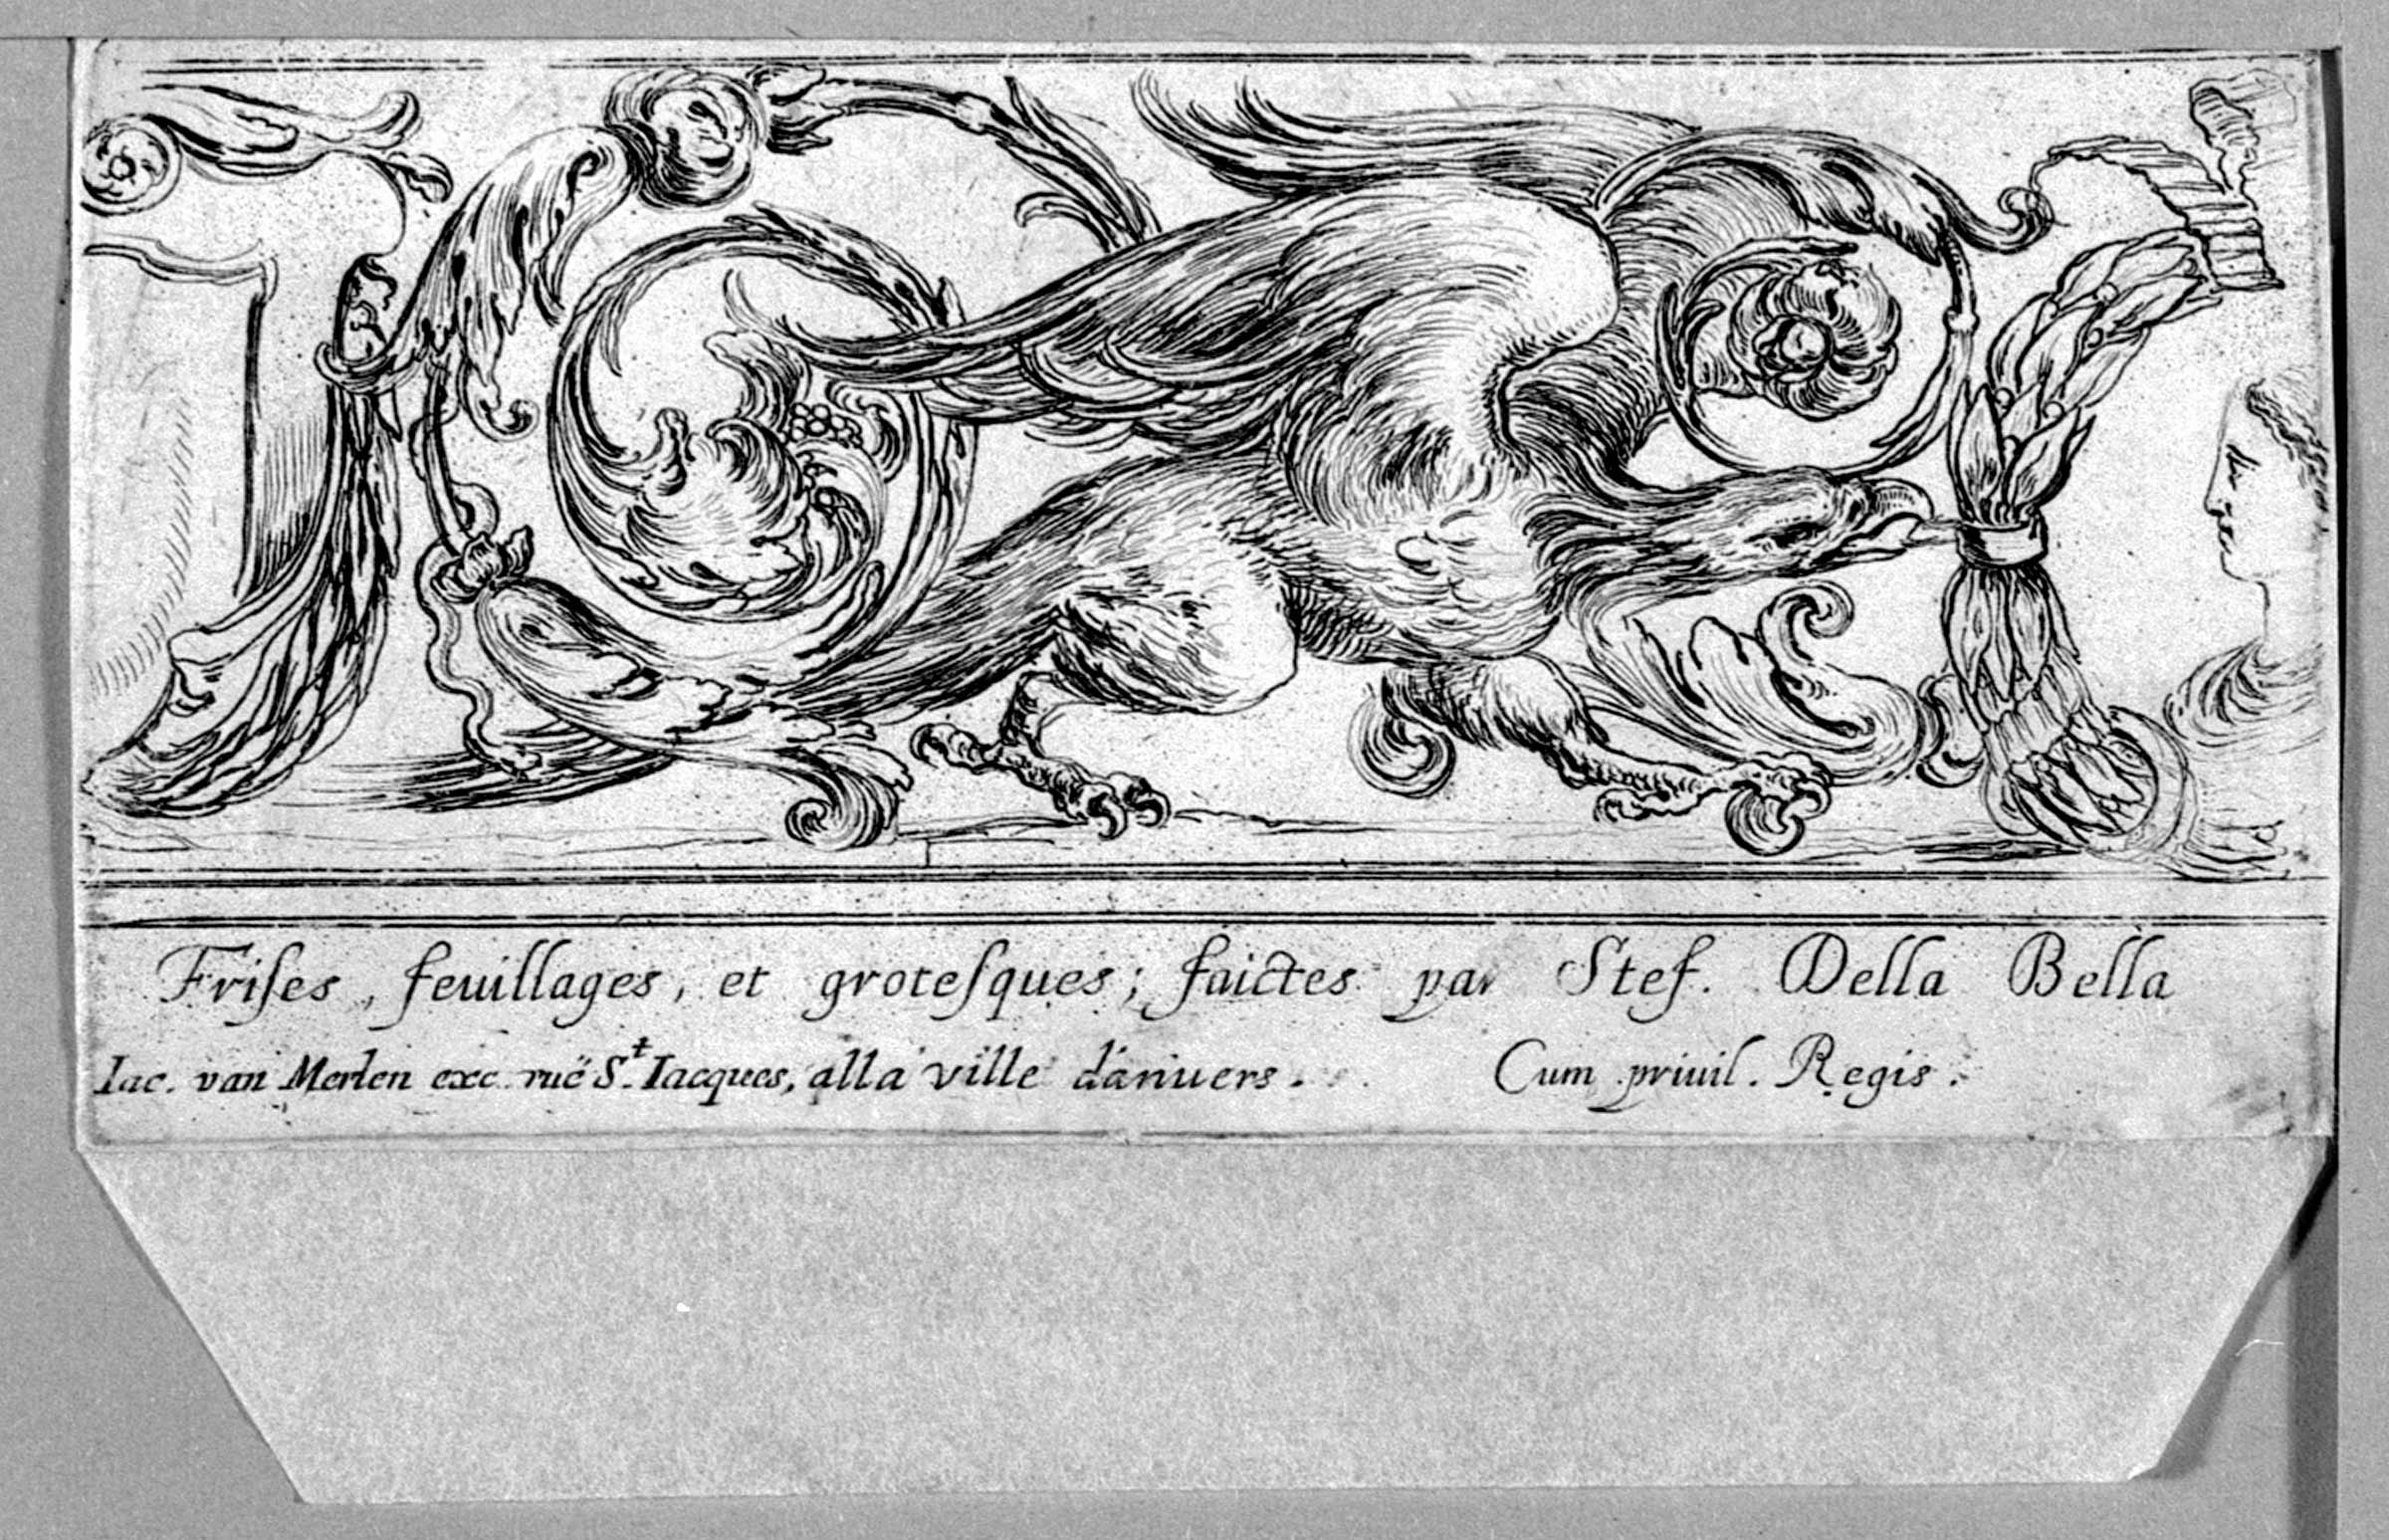 Friſes, feuillages, et groteſques; faictes par Stef. Della Bella
Iac. van Merlen exc. ruë S.t Iacques, alla ville d'anuers. Cum priuil. Regis.